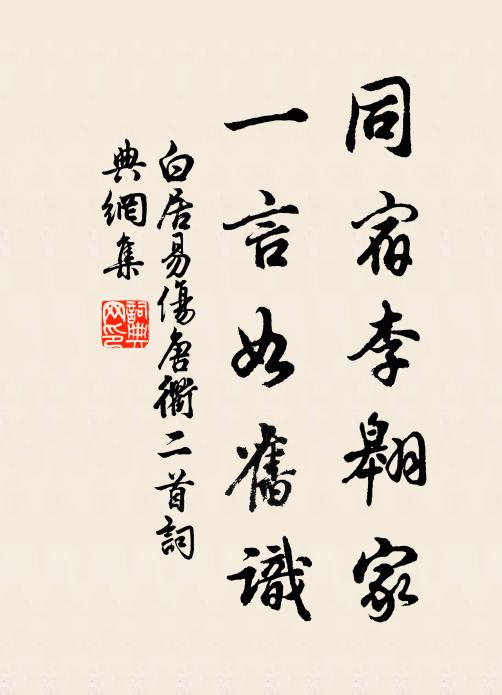 同宿李翱家
一言如舊識
白居易傷唐衢二首詞
典網集
詞典网印